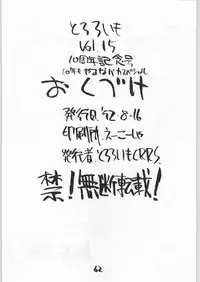 とろろいも
Vol.15
10周年記念号
10年もやるなバカスペシャル
おくづけ
発行日.'92.8-16
印刷所.えーこーしゃ
発行者.とろろいもCRRS.
禁!無断転載!
62